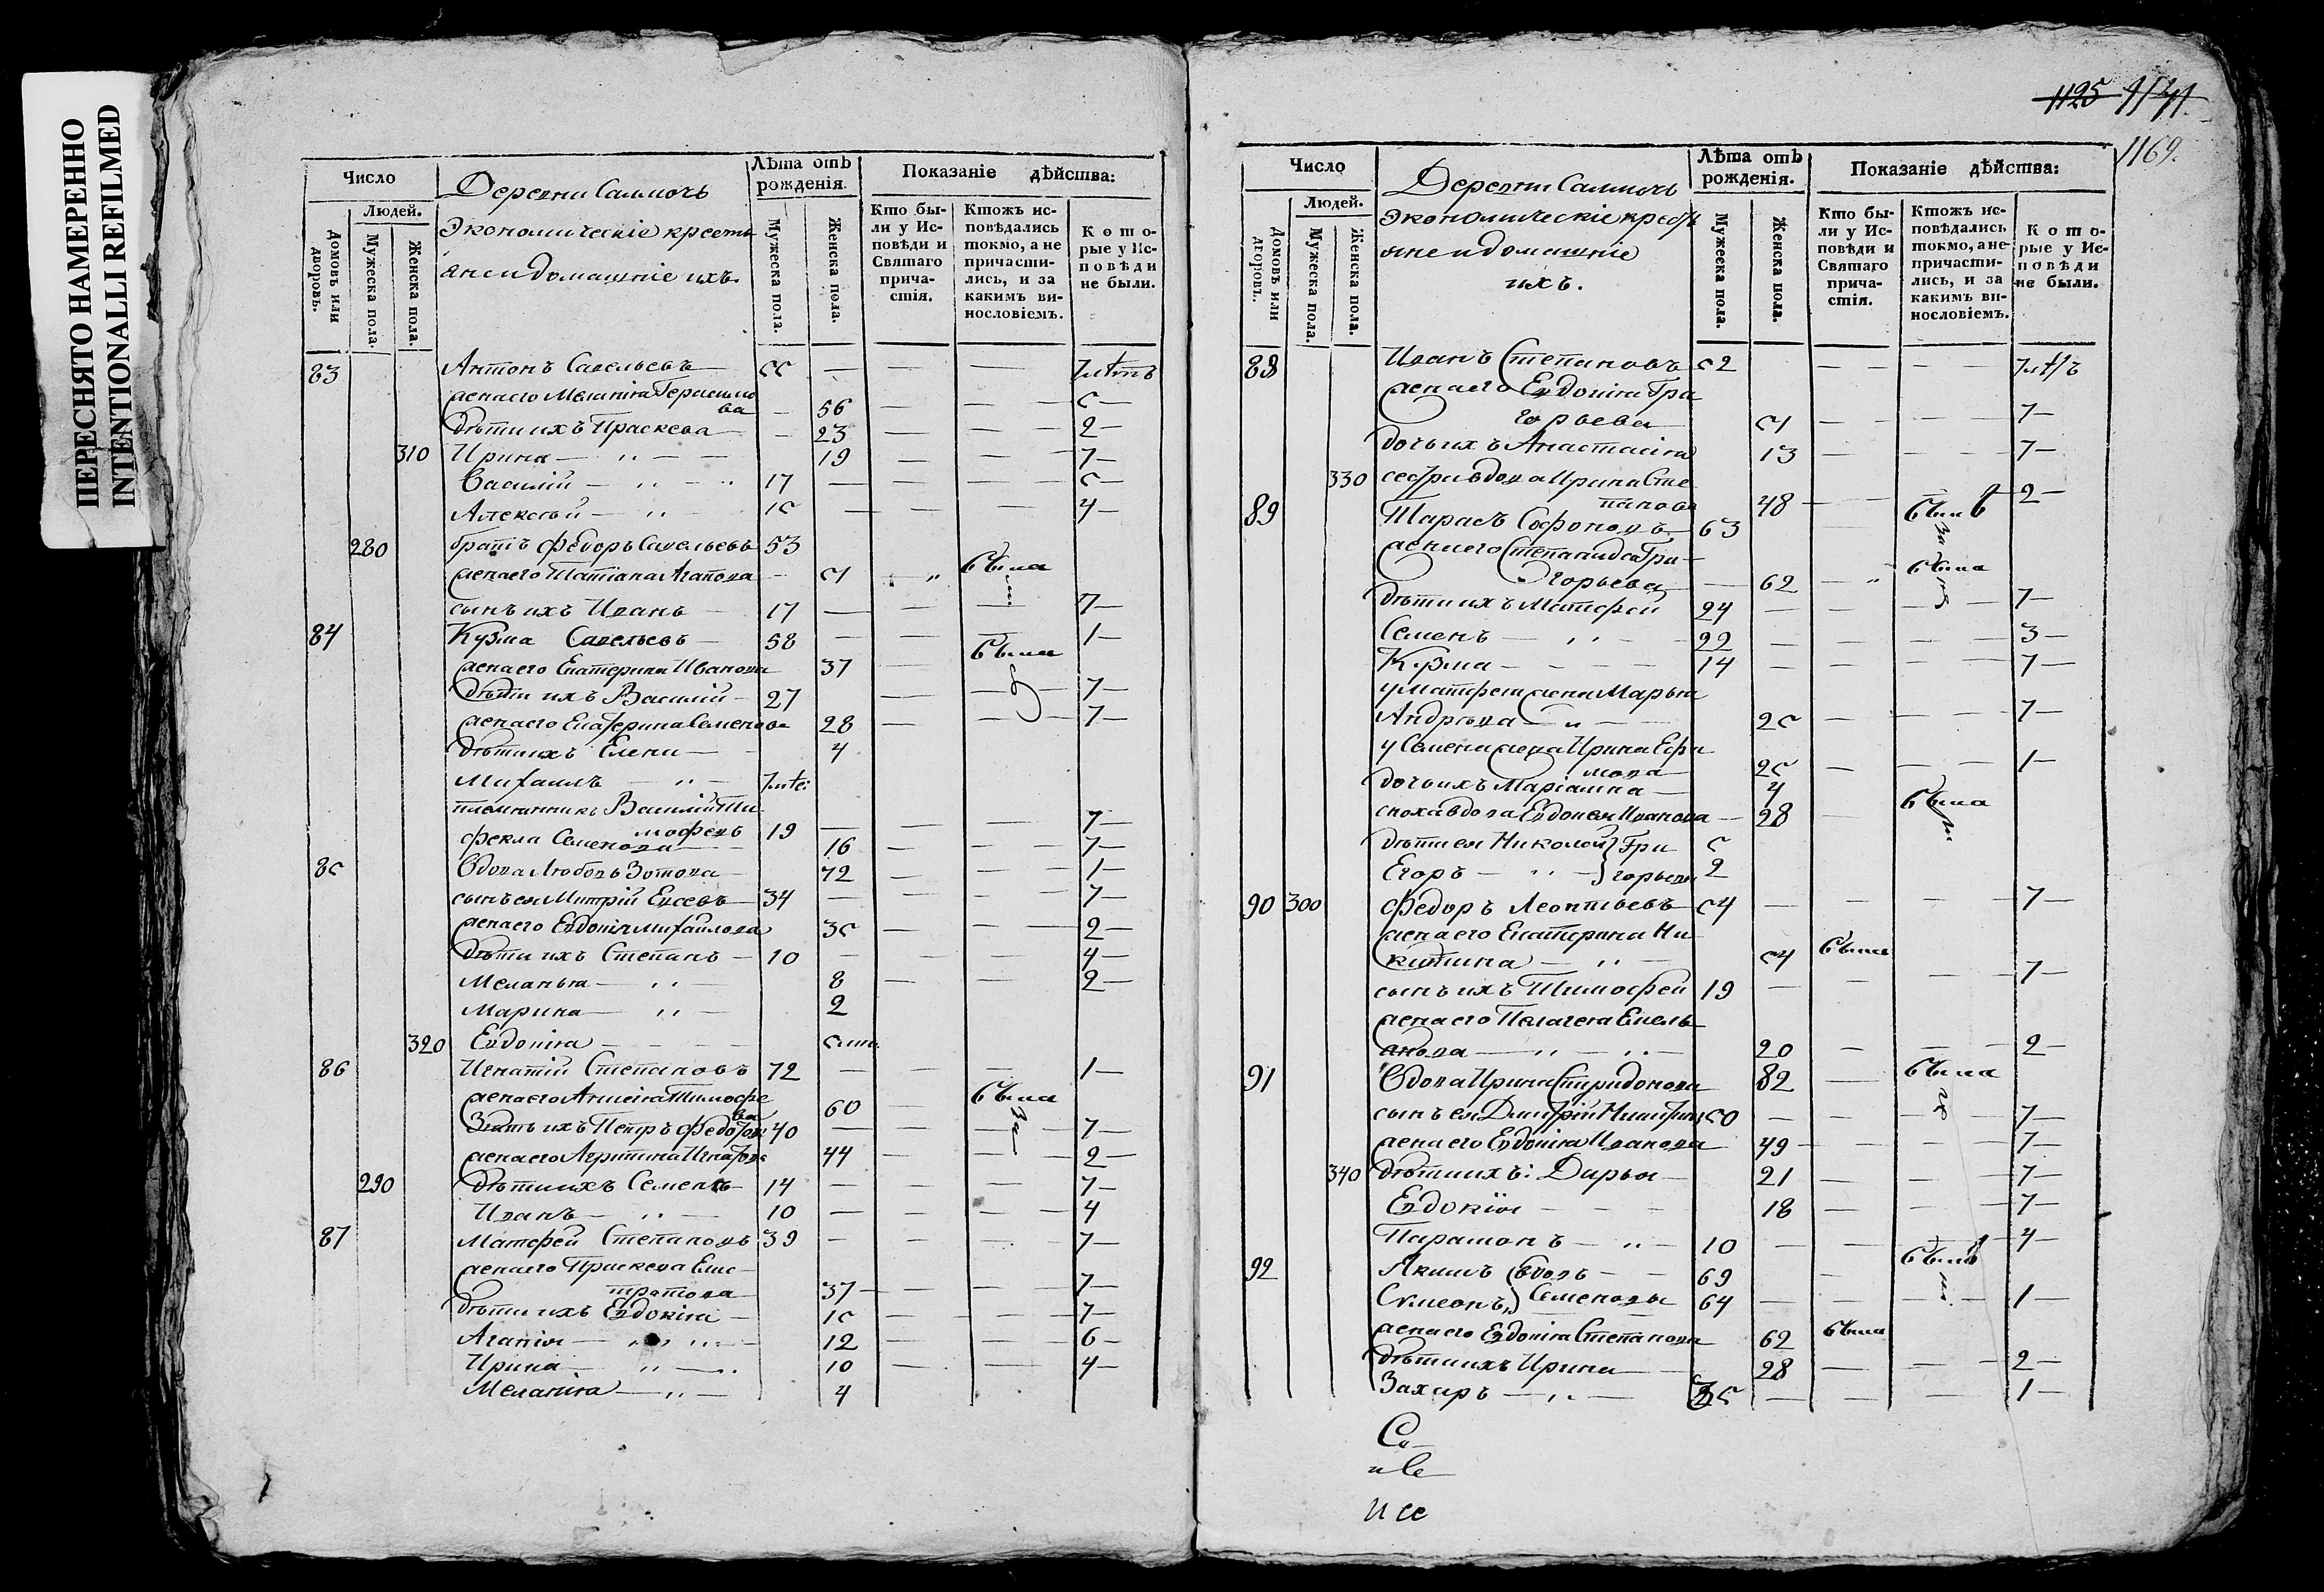 ПЕРЕСНЯТО НАМЕРЕННО
INTENTIONALLI REFILMED
Число
Деревни Салмочь
Лѣта отъ рожденія.
Показаніе дѣйства:
Людей.
Экономическіе кресть
яне и домашніе ихъ.
Домовъ или дворовъ.
Мужеска пола.
Женска пола.
Мужеска пола.
Женска пола.
Кто были у Исповѣди и Святаго причастія.
Ктожъ исповѣдались токмо, а не причастились, и за какимъ винословіемъ.
Которые у Исповѣди не были.
83 Антонъ Савельевъ 55 — — — 7 летъ
жена его Меланія Герасимо
ва — 56 — — 5 —
дѣти ихъ Праскева — 23 — — 2 —
310 Ирина — 19 — — 7 —
Василій — 17 — — — 5 —
Алексѣй — 15 — — — 4 —
280 братъ Федоръ Савельевъ 53
жена его Татіана Агапова — 51 была
сынъ ихъ Иванъ — 17 — — — 7 —
84 Кузма Савельевъ — 58 — — — 1 —
жена его Екатерина Иванова 37 — была
дѣти ихъ Василій — 27 — — 7 —
жена его Екатерина Семенова 28 — — 7 —
дѣти ихъ Елена — 4
Михаилъ —
племянникъ Василій Ти
мофеевъ 19 — — — 7 —
Фекла Семенова — 16 — — 7 —
85 Вдова Любовь Зотова — 72 — — 1 —
сынъ ея Митрій Евсевъ — 34 — — — 7 —
жена его Евдокія Михайлова 35 — — 2 —
дѣти ихъ Степанъ — 10 — — — 4 —
Меланья — 8 — — 2 —
Марина — 2
320 Евдокія —
86 Игнатій Степановъ 72 — — — 1 —
жена его Анисія Тимофе
ва 60 — была
Зять ихъ Петръ Федотов 40 — — — 7 —
жена его Агрипина Игнатова 44 — — 2 —
290 дѣти ихъ Семенъ — 14 — — — 7 —
Иванъ — 10 — — — 4
87 Матфей Степановъ 39 — — — 7 —
жена его Праскева Евс
тратова 37 — — — 7 —
дѣти ихъ Евдокія — 15 — — 7 —
Агапія — 12 — — 6 —
Ирина — 10 — — 4 —
Меланія — 4
1125
1169.
Число
Деревни Салмочь
Лѣта отъ рожденія.
Показаніе дѣйства:
Людей.
экономическіе кресть
яне и домашніе
ихъ.
Домовъ или дворовъ.
Мужеска пола.
Женска пола.
Мужеска пола.
Женска пола.
Кто были у Исповѣди и Святаго причастія.
Ктожъ исповѣдались токмо, а не причастились, и за какимъ винословіемъ.
Которые у Исповѣди не были.
88 Иванъ Степановъ 52 — — — 7 летъ
жена его Евдокія Гри
горьева — 51 — — 7 —
дочь ихъ Анастасія 13 — — 7 —
330 сестра вдова Ирина Сте
панова 48 — — 2 —
89 Тарасъ Софоновъ 63 — былъ
жена его Степанида Гри
горьева — 62 — была
дѣти ихъ Матфей 24 — — — 7 —
Семенъ — 22 — — — 3 —
Кузма — 14 — — — 7 —
у Матфея жена Марья
Андреева — 25 — — 7 —
у Семена жена Ирина Ефи
мова — 25 — — 1 —
дочь ихъ Маріамна — 4
сноха вдова Евдокея Иванова — 28 — была
дѣти ея Николай } Гри 5
Егоръ — } горьевы 2
90 300 Федоръ Леонтьевъ 54 — — — 7 —
жена его Екатерина Ни
китина — 54 была
сынъ ихъ Тимофей 19 — — — 7 —
жена его Пелагея Емель
янова — 20 — — 2 —
91 Вдова Ирина Спиридонова 82 — была
сынъ ея Дмитрій Никитинъ 50 — — — 7 —
жена его Евдокія Иванова 49 — — — 7 —
340 дѣти ихъ: Дарья — 21 — — 7 —
Евдокія — 18 — — 7 —
Парамонъ — 10 — — — 4 —
92 Акимъ } вдовъ — 69 — былъ
Симеонъ } Семеновы 64 — — — 1 —
жена его Евдокія Степанова 62 была
дѣти ихъ Ирина — 28 — — 2 —
Захаръ — 35 — — — 1 —